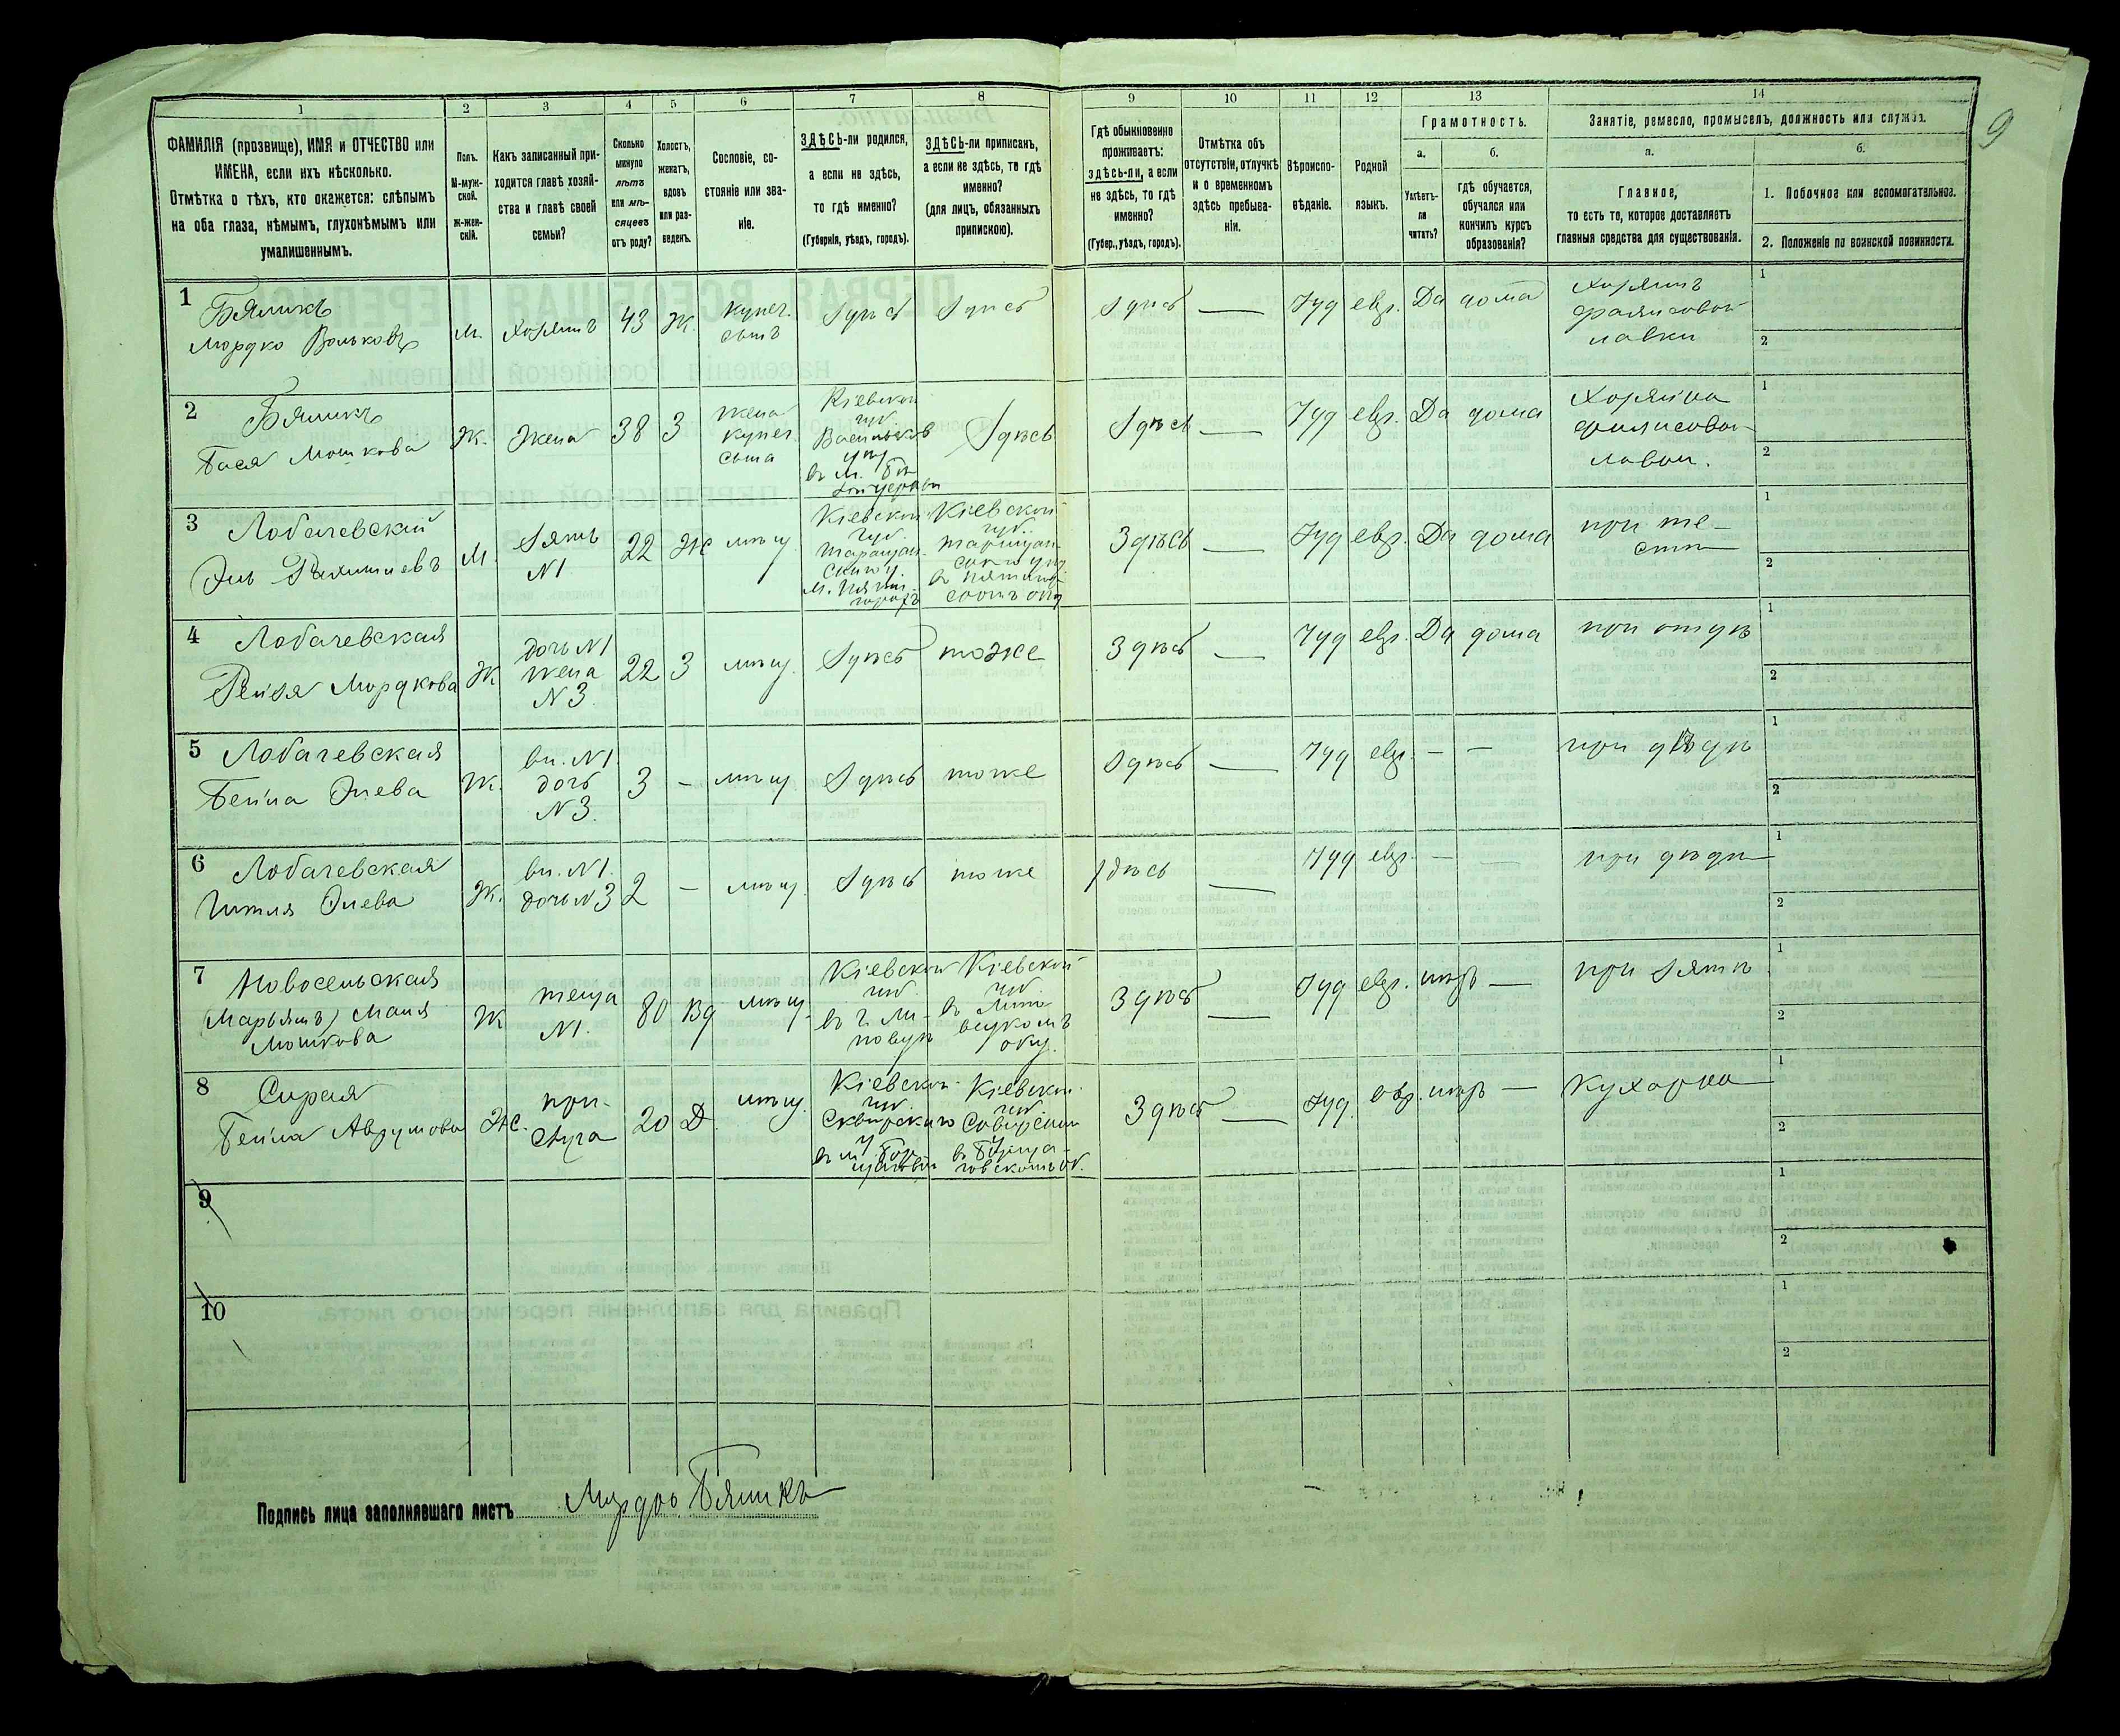 1 2 3 4 5 6 7 8 9 10 11 12 13 14
9
ФАМИЛІЯ (прозвище), ИМЯ и ОТЧЕСТВО или
ИМЕНА, если ихъ нѣсколько.
Отмѣтка о тѣхъ, кто окажется: слѣпымъ
на оба глаза, нѣмымъ, глухонѣмымъ или
умалишеннымъ.
Полъ.
М-муж-
ской.
ж-жен-
скій.
Какъ записанный при-
ходится главѣ хозяй-
ства и главѣ своей
семьи?
Сколько
минуло
лѣтъ
или мѣ-
сяцевъ
отъ роду?
Холостъ,
женатъ,
вдовъ
или раз-
веденъ.
Сословіе, со-
стояніе или зва-
ніе.
ЗДѢСЬ-ли родился,
а если не здѣсь,
то гдѣ именно?
(Губернія, уѣздъ, городъ).
ЗДѢСЬ-ли приписанъ,
а если не здѣсь, то гдѣ
именно?
(для лицъ, обязанныхъ
припискою).
Гдѣ обыкновенно
проживаетъ:
здѣсь-ли, а если
не здѣсь, то гдѣ
именно?
(Губер., уѣздъ, городъ).
Отмѣтка объ
отсутствіи, отлучкѣ
и о временномъ
здѣсь пребыва-
ніи.
Вѣроиспо-
вѣданіе.
Родной
языкъ.
Грамотность.
а.
Умѣетъ-
ли
читать?
б.
гдѣ обучается,
обучался или
кончилъ курсъ
образованія?
Занятіе, ремесло, промыселъ, должность или служба.
а.
Главное,
то есть то, которое доставляетъ
главныя средства для существованія.
б.
1. Побочное или вспомогательное.
2. Положеніе по воинской повинности.
1 Бяликъ
Мордко Вольковъ
М. Хозяинъ 43 Ж. купеч.
сынъ
Здѣсь Здѣсь Здѣсь — Іуд евр. Да дома
Хозяинъ
лавки
1
2
2 Бяликъ
Бася Мошкова
Ж. Жена 38 З жена
купеч.
сына
Кіевской
губ.
Васильков
у
въ м. Бѣ
Здѣсь Здѣсь — Іуд евр. Да дома
Хозяйка
лавки.
1
2
3 Лобачевскій
М. Зять
N1
22 Ж мѣщ.
Кіевской
губ.
Таращан-
скаго у.
Кіевской
губ.
Таращан-
Здѣсь — Іуд евр. Да дома
при те-
стѣ
1
2
4 Лобачевская
Рейзя Мордкова
Ж дочь N1
жена
N3.
22 З мѣщ. Здѣсь тоже Здѣсь — Іуд евр. Да дома при отцѣ
1
2
5 Лобачевская
Бейла Элева
Ж. вн. N1.
дочь
N3.
3 – мѣщ. Здѣсь тоже Здѣсь — Іуд евр. – – при дѣдѣ
1
2
6 Лобачевская
Гитля Элева
Ж. вн. N1.
дочь N3
2 – мѣщ. Здѣсь тоже здѣсь — Іуд евр. – – при дѣдѣ
1
2
7 Новосельская
(Марьямъ) Маня
Мошкова
Ж теща
N1.
80 Вд мѣщ.
Кіевской
губ.
въ г. Ли-
повцѣ
Кіевской
губ.
въ Липо-
вецкомъ
общ.
Здѣсь — Іуд евр. нѣтъ — при зятѣ
1
2
8 Сирая
Бейла Аврумова
Ж. при-
слуга
20 Д. мѣщ.
Кіевской
губ.
Сквирскаго
у.
Кіевской
губ.
Сквирскаго
у.
Здѣсь — Іуд. евр. нѣтъ — Кухарка
1
2
9
1
2
10
1
2
Подпись лица заполнявшаго листъ Мордко Бяликъ